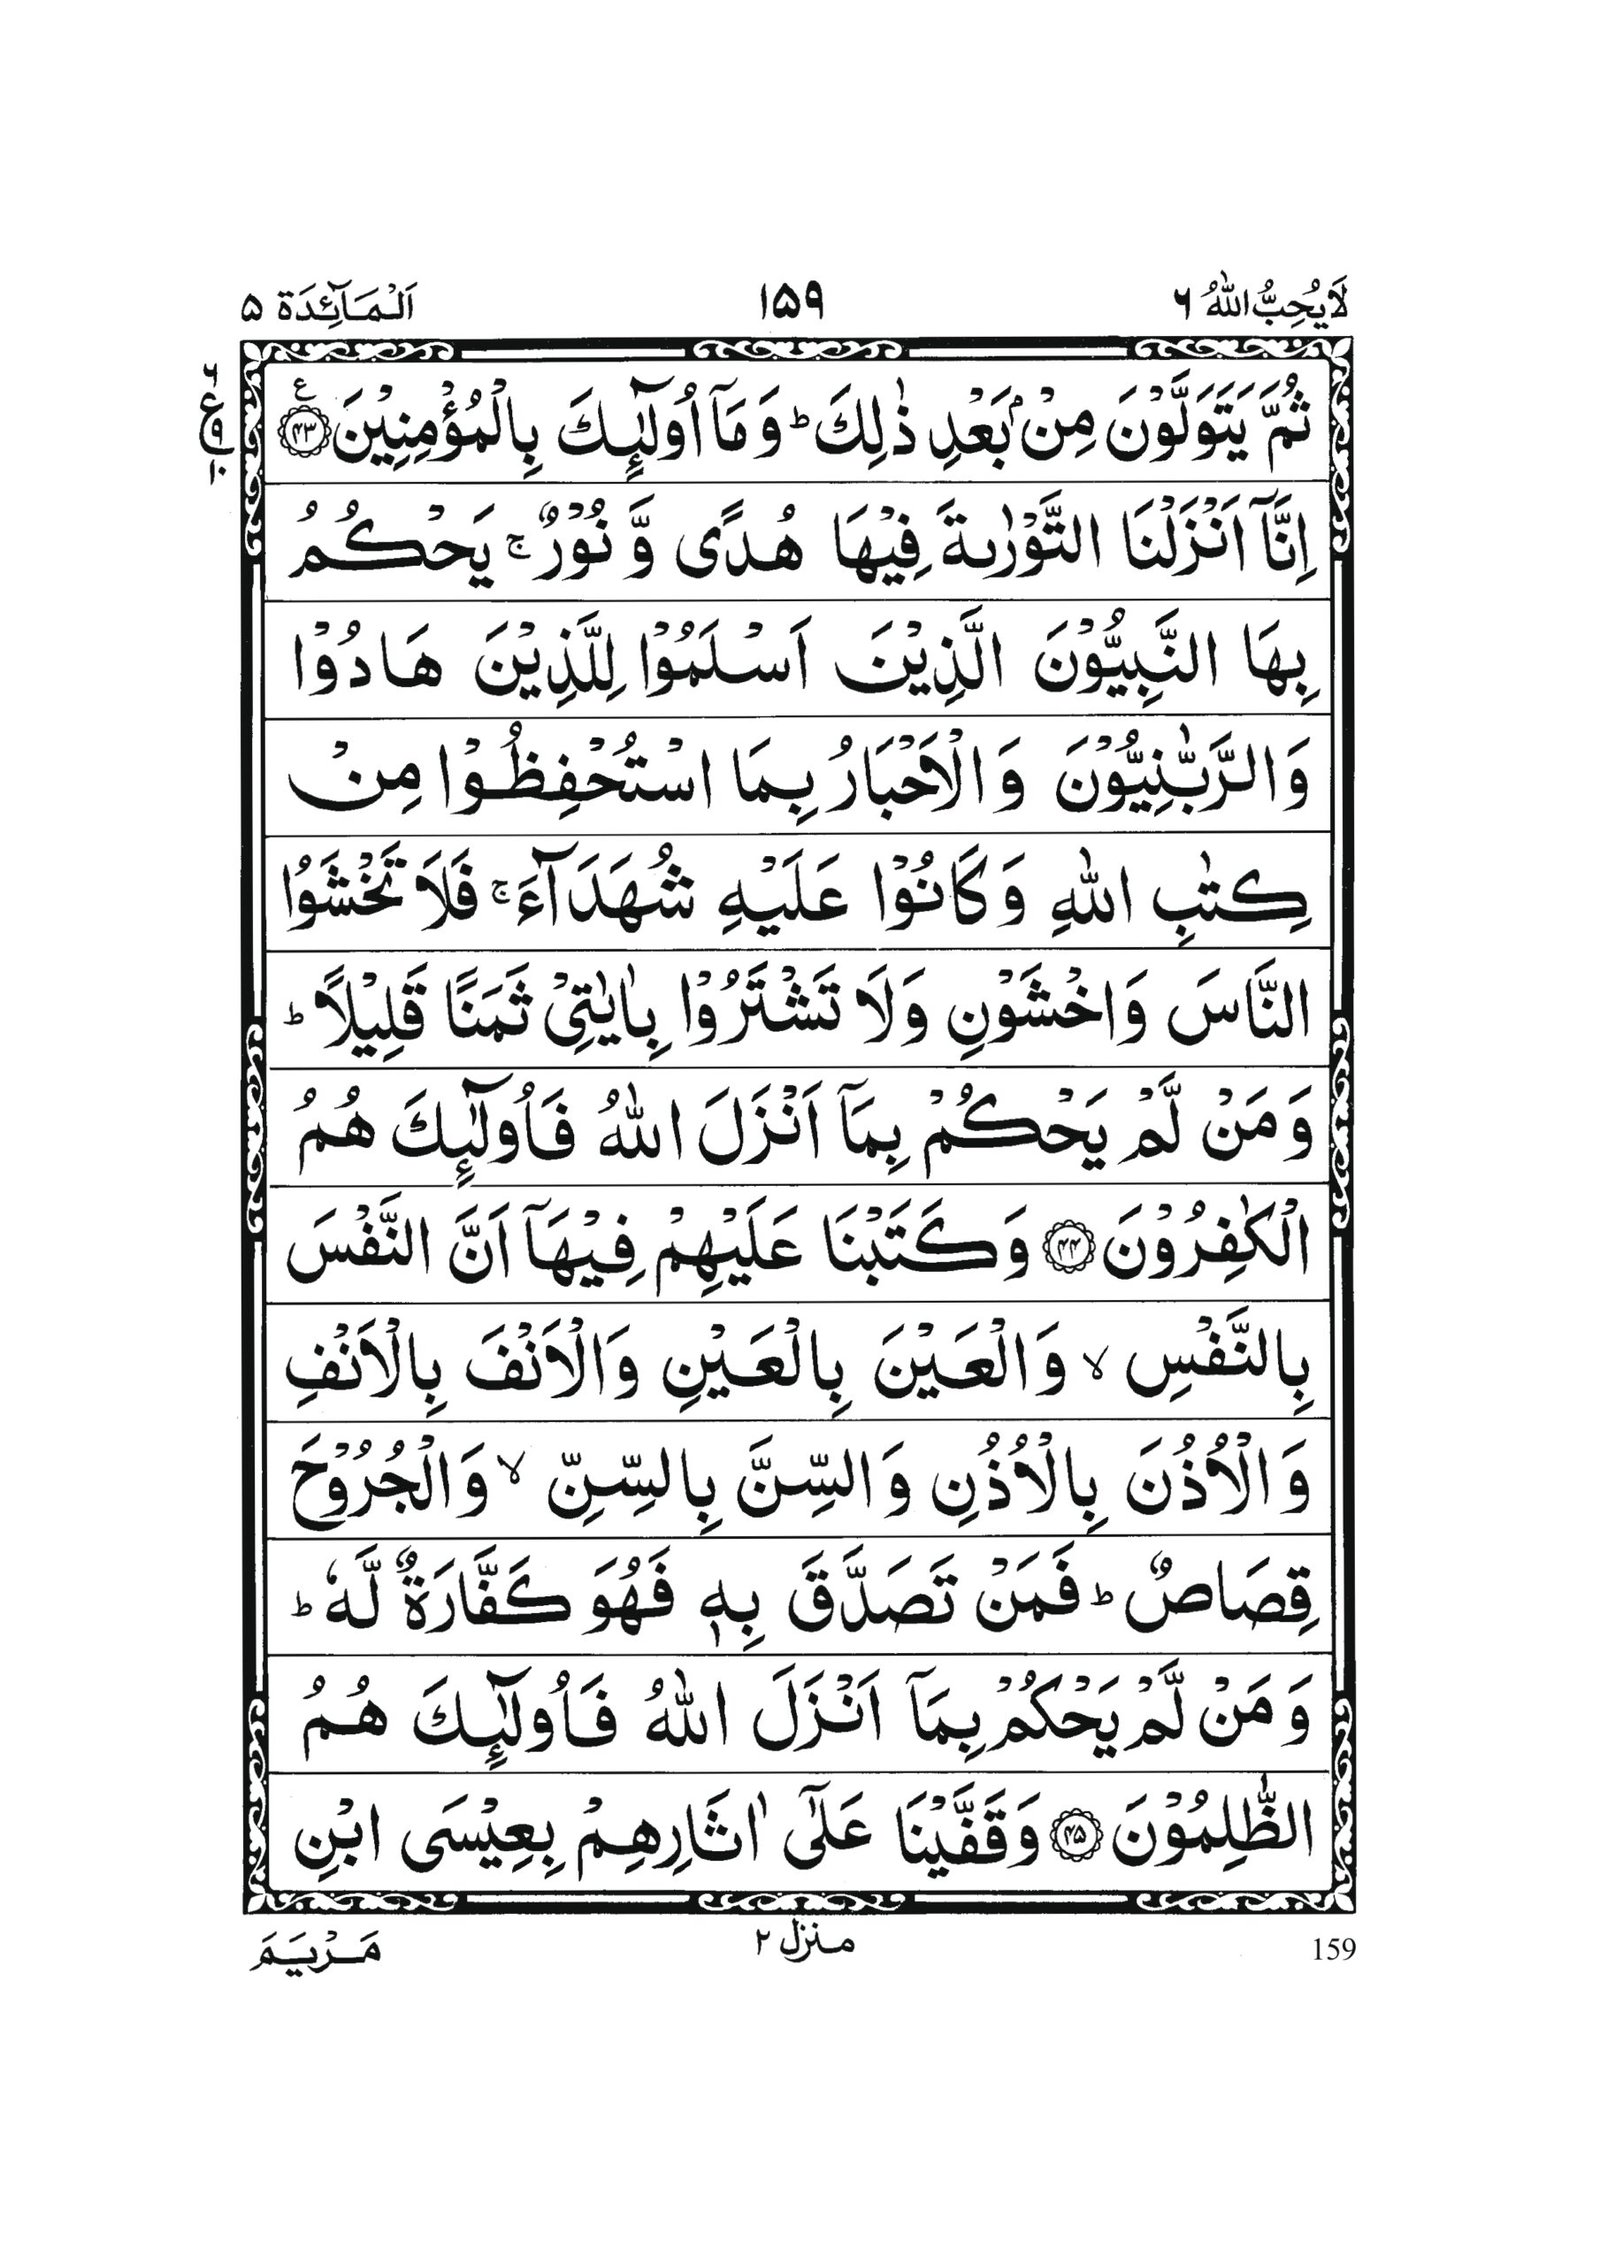 لَا يُحِبُّ اللّٰهُ ٦
١٥٩
اَلْمَآئِدَة ٥
ثُمَّ يَتَوَلَّوْنَ مِنْۢ بَعْدِ ذٰلِكَ ؕ وَ مَاۤ اُولٰٓئِكَ بِالْمُؤْمِنِيْنَ ﴿۴۳﴾ ع
٦ ع ٩ ١٠
اِنَّاۤ اَنْزَلْنَا التَّوْرٰىةَ فِيْهَا هُدًى وَّ نُوْرٌ ۚ يَحْكُمُ
بِهَا النَّبِيُّوْنَ الَّذِيْنَ اَسْلَمُوْا لِلَّذِيْنَ هَادُوْا
وَالرَّبّٰنِيُّوْنَ وَ الْاَحْبَارُ بِمَا اسْتُحْفِظُوْا مِنْ
كِتٰبِ اللّٰهِ وَ كَانُوْا عَلَيْهِ شُهَدَآءَ ۚ فَلَا تَخْشَوُا
النَّاسَ وَ اخْشَوْنِ وَلَا تَشْتَرُوْا بِاٰيٰتِيْ ثَمَنًا قَلِيْلًا ؕ
وَ مَنْ لَّمْ يَحْكُمْ بِمَاۤ اَنْزَلَ اللّٰهُ فَاُولٰٓئِكَ هُمُ
الْكٰفِرُوْنَ ﴿۴۴﴾ وَ كَتَبْنَا عَلَيْهِمْ فِيْهَاۤ اَنَّ النَّفْسَ
بِالنَّفْسِ ۙ وَ الْعَيْنَ بِالْعَيْنِ وَالْاَنْفَ بِالْاَنْفِ
وَ الْاُذُنَ بِالْاُذُنِ وَ السِّنَّ بِالسِّنِّ ۙ وَالْجُرُوْحَ
قِصَاصٌ ؕ فَمَنْ تَصَدَّقَ بِهٖ فَهُوَ كَفَّارَةٌ لَّهٗ ؕ
وَ مَنْ لَّمْ يَحْكُمْ بِمَاۤ اَنْزَلَ اللّٰهُ فَاُولٰٓئِكَ هُمُ
الظّٰلِمُوْنَ ﴿۴۵﴾ وَ قَفَّيْنَا عَلٰۤى اٰثَارِهِمْ بِعِيْسَى ابْنِ
159
منزل ٢
مَرْيَمَ